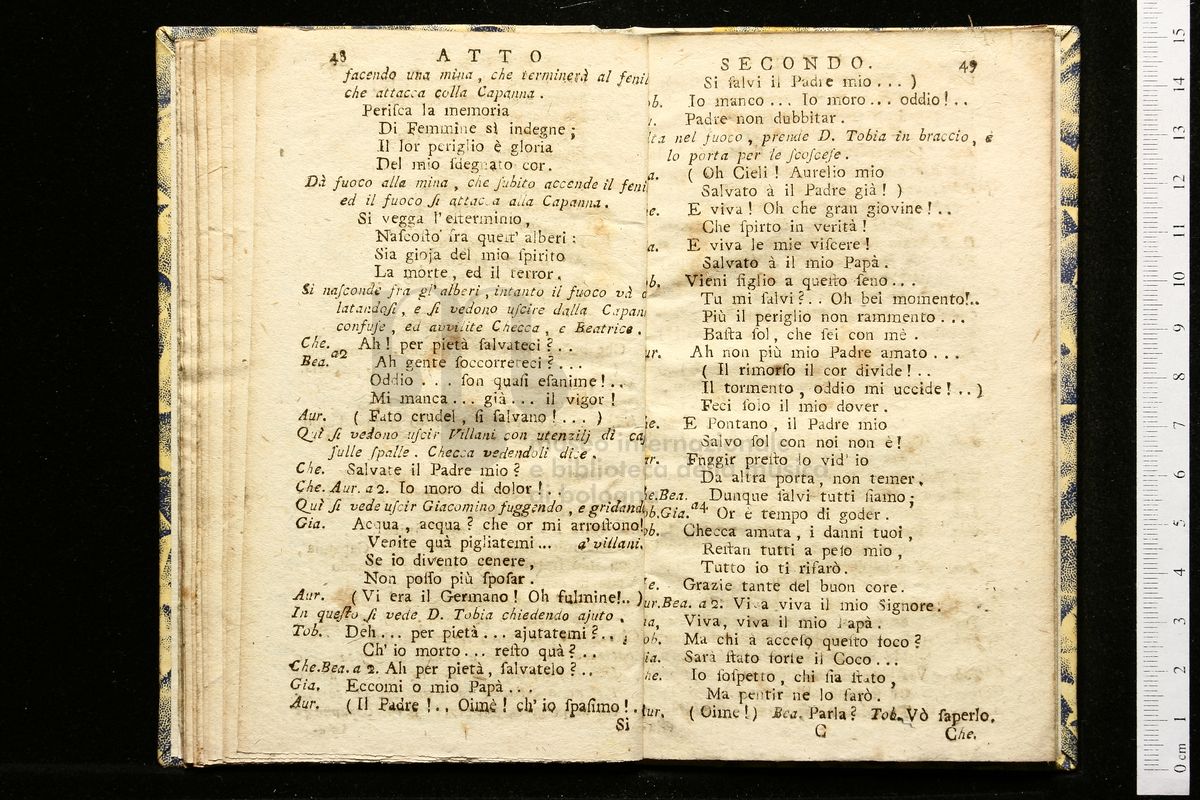 48 ATTO
facendo una mina, che terminerà al fenil
che attacca colla Capanna.
Perisca la memoria
Di Femmine sì indegne;
Il lor periglio è gloria
Del mio sdegnato cor.
Dà fuoco alla mina, che subito accende il feni
ed il fuoco si attacca alla Capanna.
Si vegga l'esterminio,
Nascosto fra quest' alberi:
Sia gioja del mio spirito
La morte, ed il terror.
Si nasconde fra gl' alberi, intanto il fuoco và d
latandosi, e si vedono uscire dalla Capan
confuse, ed avvilite Checca, e Beatrice.
Che. Ah! per pietà salvateci?..
Bea. a2 Ah gente soccorreteci?...
Oddio.. son quasi esanime!..
Mi manca.. già... il vigor!
Aur. (Fato crudel, si salvano!....)
Quì si vedono uscir Villani con utenzilj di ca
sulle spalle. Checca vedendoli dice.
Che. Salvate il Padre mio?
Che. Aur. a 2. Io moro di dolor!..
Quì si vede uscir Giacomino fuggendo, e gridand
Gia. Acqua, acqua? che or mi arrostono!
Venite quà pigliatemi... a' villani.
Se io divento cenere,
Non posso più sposar.
Aur. (Vi era il Germano! Oh fulmine!..)
In questo si vede D. Tobia chiedendo ajuto.
Tob. Deh... per pietà... ajutatemi?..
Ch' io morto... resto quà?..
Che.Bea. a 2. Ah per pietà, salvatelo?..
Gia. Eccomi o mio Papà...
Aur. (Il Padre!.. Oimè! ch' io spasimo!..
Si
SECONDO. 49
Si salvi il Padre mio...)
ob. Io manco... Io moro... oddio!..
Padre non dubbitar.
lta nel fuoco, prende D. Tobia in braccio, e
lo porta per le scoscese.
a. (Oh Cieli! Aurelio mio
Salvato à il Padre già!)
e. E viva! Oh che gran giovine!..
Che spirto in verità!
a. E viva le mie viscere!
Salvato à il mio Papà.
ob. Vieni figlio a questo seno...
Tu mi salvi?.. Oh bel momento!..
Più il periglio non rammento...
Basta sol, che sei con mè.
ur. Ah non più mio Padre amato...
(Il rimorso il cor divide!..
Il tormento, oddio mi uccide!..)
Feci solo il mio dover.
he. E Pontano, il Padre mio
Salvo sol con noi non è!
ur. Fuggir presto lo vid' io
Da altra porta, non temer.
he.Bea. Dunque salvi tutti siamo;
ob.Gia. a4 Or è tempo di goder.
ob. Checca amata, i danni tuoi,
Restan tutti a peso mio,
Tutto io ti rifarò.
he. Grazie tante del buon core.
ur.Bea. a 2. Viva viva il mio Signore.
ia. Viva, viva il mio Papà.
ob. Ma chi a acceso questo foco?
ia. Sarà stato forse il Coco...
he. Io sospetto, chi sia stato,
Ma pentir ne lo farò.
ur. (Oime!) Bea. Parla? Tob. Vò saperlo.
C Che.